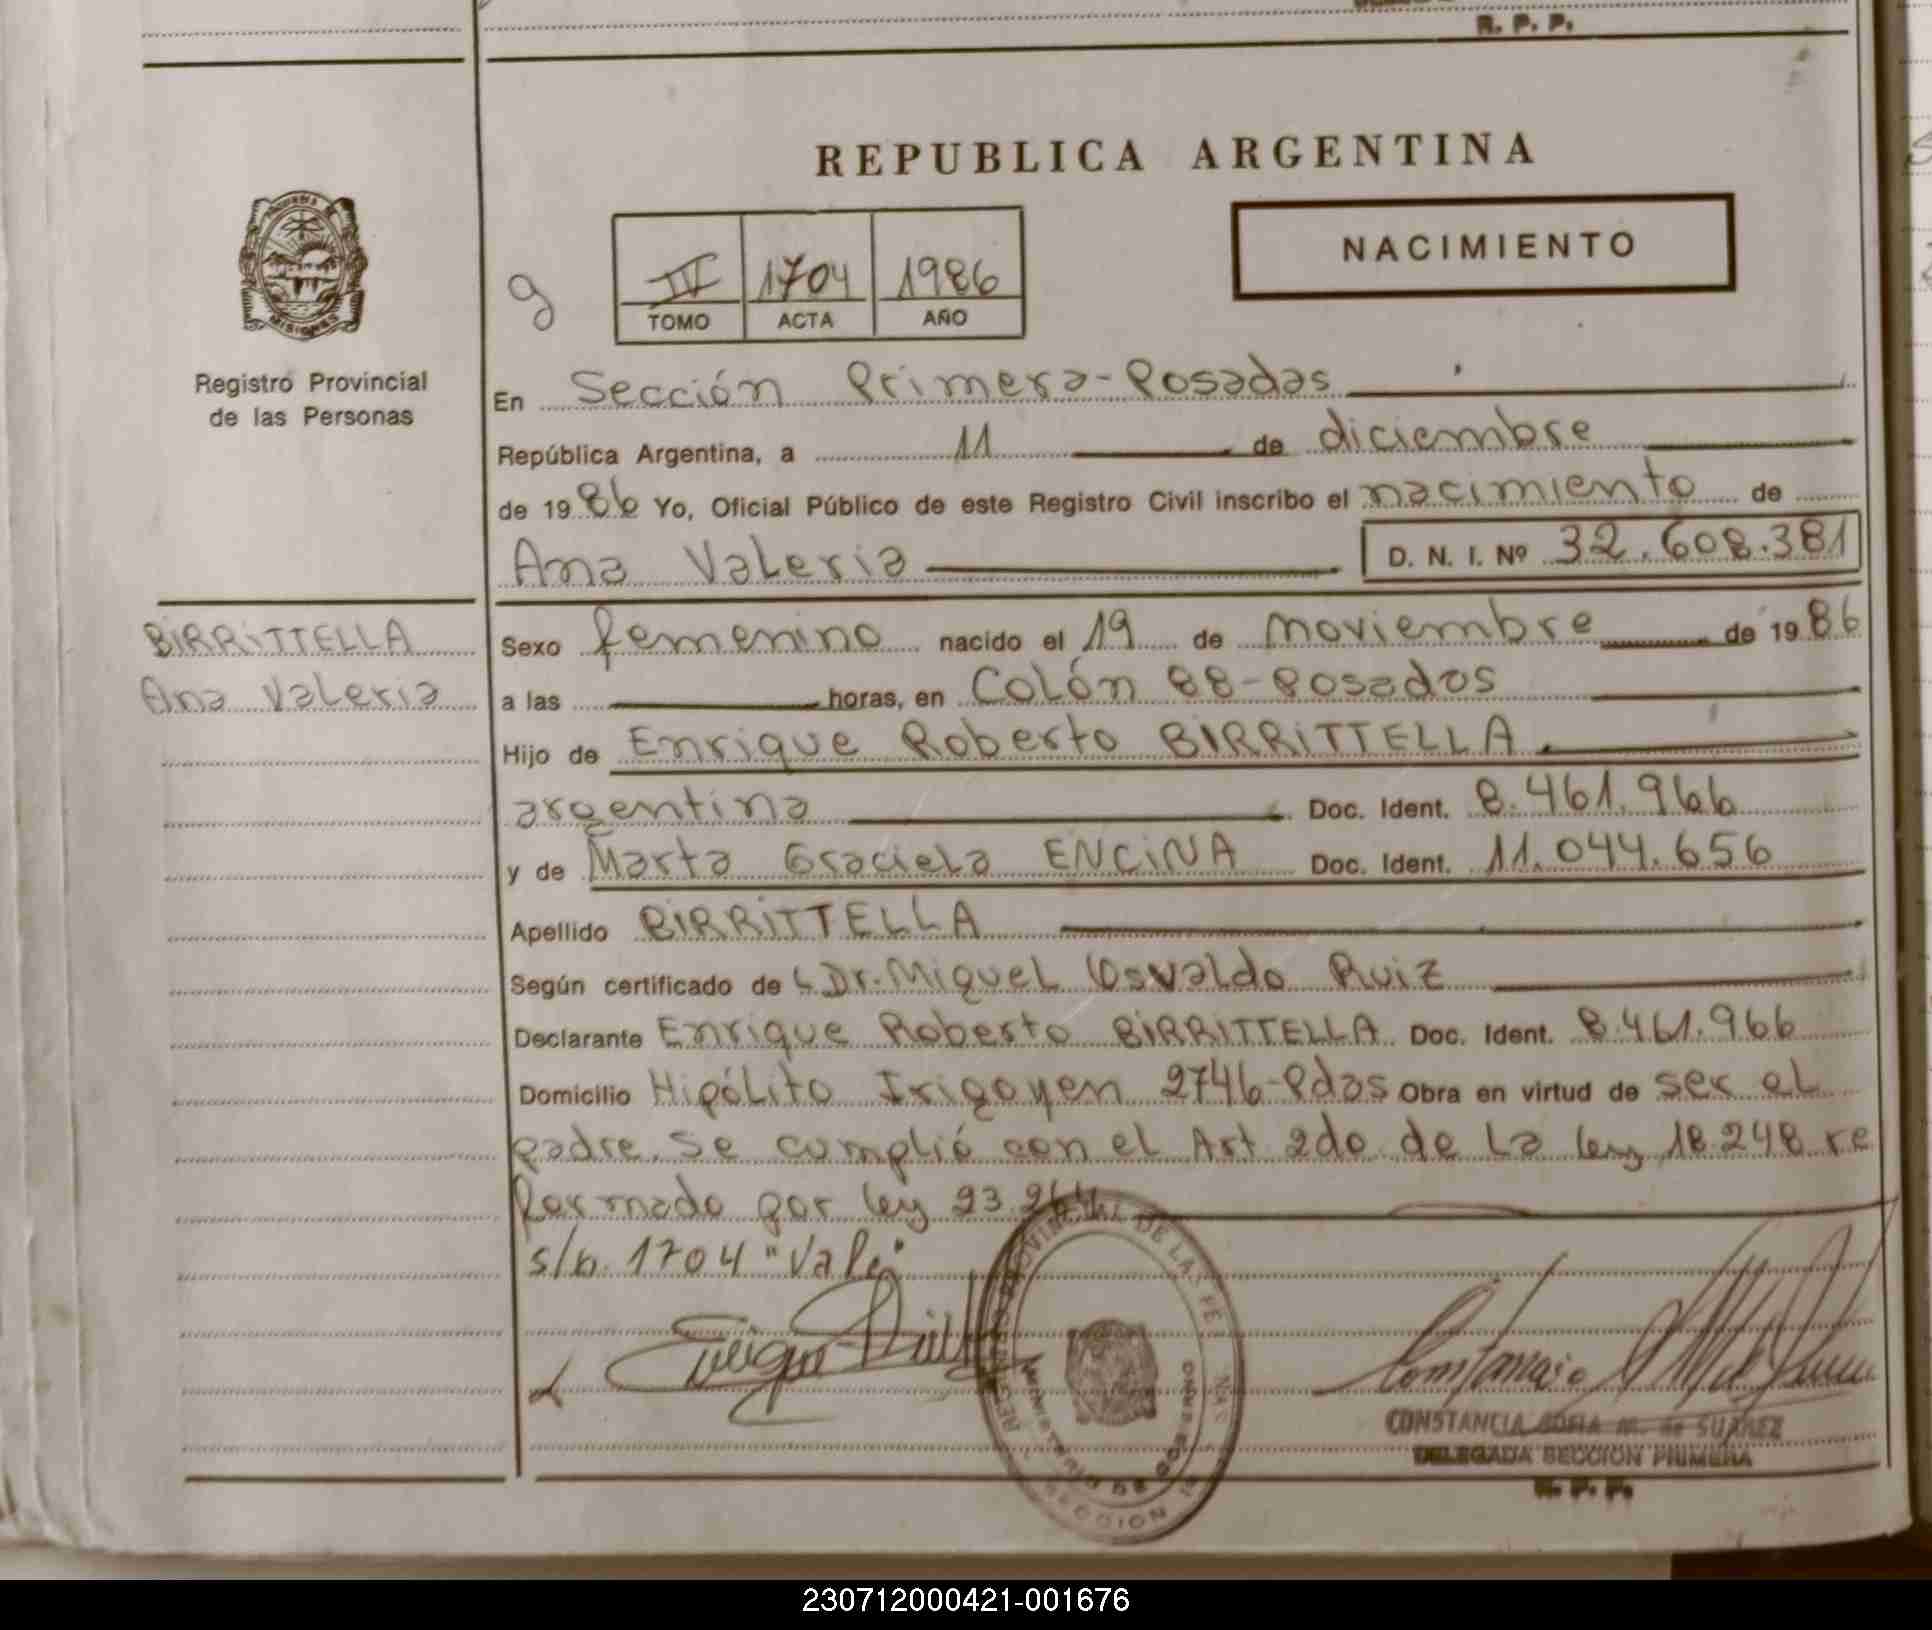 R. P. P.
REPUBLICA ARGENTINA
NACIMIENTO
g
IV 1704 1986
TOMO ACTA AÑO
MISIONES
Registro Provincial
de las Personas
En Sección Primera-Posadas
República Argentina, a 11 de diciembre
de 1986 Yo, Oficial Público de este Registro Civil inscribo el nacimiento de
Ana Valeria D. N. I. Nº 32.608.381
BIRRITTELLA
Ana Valeria
Sexo femenino nacido el 19 de noviembre de 1986
a las horas, en Colón 88-Posadas
Hijo de Enrique Roberto BIRRITTELLA
argentina Doc. Ident. 8.461.966
y de Marta Graciela ENCINA Doc. Ident. 11.044.656
Apellido BIRRITTELLA
Según certificado de Dr. Miguel Osvaldo Ruiz
Declarante Enrique Roberto BIRRITTELLA Doc. Ident. 8.461.966
Domicilio Hipólito Irigoyen 2746-Pdas Obra en virtud de ser el
padre. Se cumplió con el Art 2do de La ley 18.248 re
formado por ley 23.264
s/b. 1704 "Vale"
REGISTRO PROVINCIAL DE LAS PERSONAS
MINISTERIO DE GOBIERNO
SECCION 1a
CONSTANCIA SOFIA M. de SUAREZ
DELEGADA SECCION PRIMERA
R. P. P.
230712000421-001676